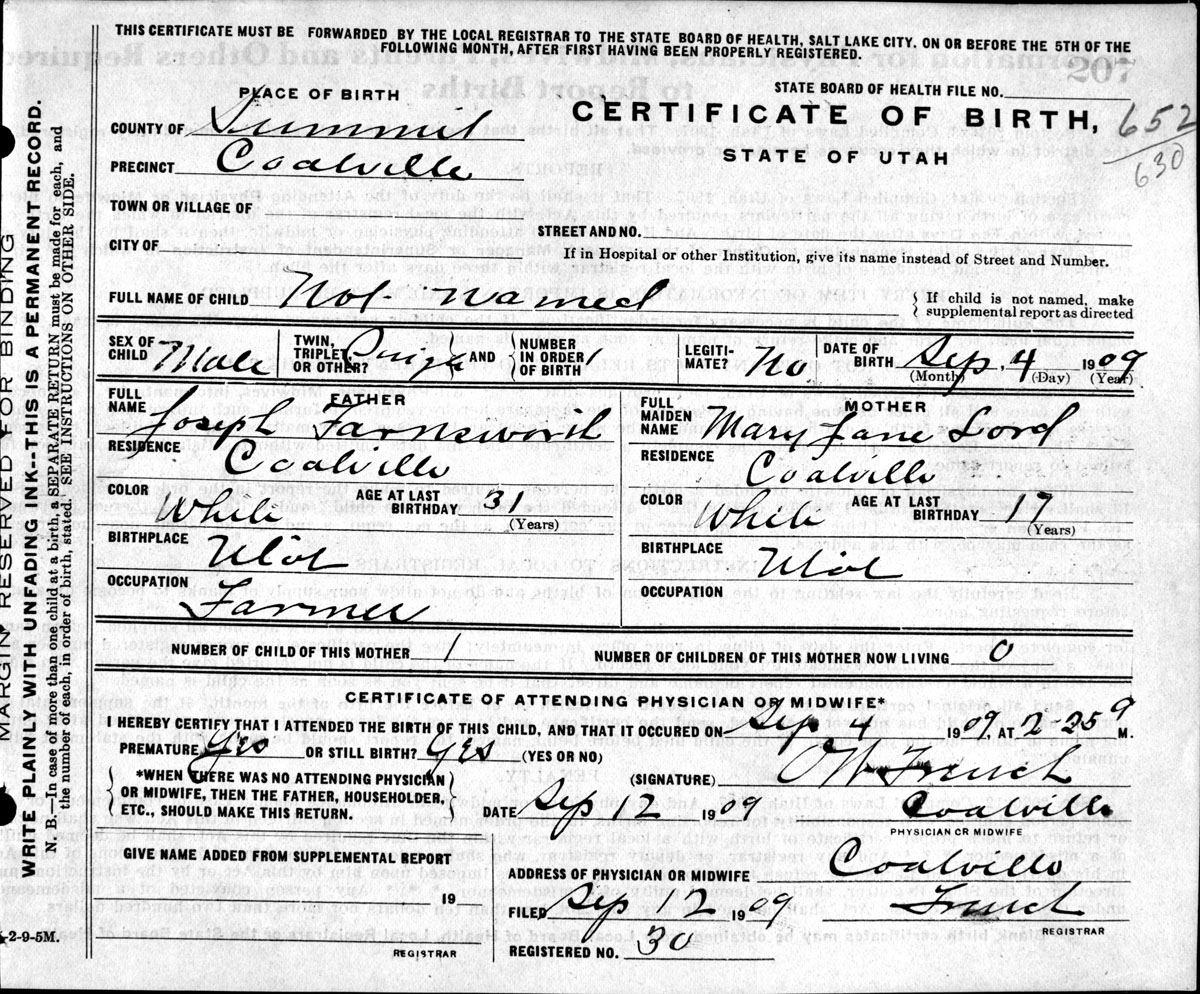 THIS CERTIFICATE MUST BE FORWARDED BY THE LOCAL REGISTRAR TO THE STATE BOARD OF HEALTH, SALT LAKE CITY. ON OR BEFORE THE 5TH OF THE
FOLLOWING MONTH, AFTER FIRST HAVING BEEN PROPERLY REGISTERED.
PLACE OF BIRTH
STATE BOARD OF HEALTH FILE NO.
COUNTY OF Summit
CERTIFICATE OF BIRTH, 652
PRECINCT Coalville
STATE OF UTAH 630
TOWN OR VILLAGE OF
STREET AND NO.
CITY OF
If in Hospital or other Institution, give its name instead of Street and Number.
FULL NAME OF CHILD Not Named { If child is not named, make
supplemental report as directed
SEX OF CHILD Male TWIN, TRIPLET OR OTHER? AND NUMBER IN ORDER OF BIRTH 1 LEGITI-MATE? No DATE OF BIRTH Sep. 4 1909
(Month) (Day) (Year)
FATHER
FULL NAME Joseph Farnsworth
RESIDENCE Coalville
COLOR White AGE AT LAST BIRTHDAY 31
(Years)
BIRTHPLACE Utah
OCCUPATION Farmer
MOTHER
FULL MAIDEN NAME Mary Jane Lord
RESIDENCE Coalville
COLOR White AGE AT LAST BIRTHDAY 17
(Years)
BIRTHPLACE Utah
OCCUPATION
NUMBER OF CHILD OF THIS MOTHER
NUMBER OF CHILDREN OF THIS MOTHER NOW LIVING 0
CERTIFICATE OF ATTENDING PHYSICIAN OR MIDWIFE*
I HEREBY CERTIFY THAT I ATTENDED THE BIRTH OF THIS CHILD, AND THAT IT OCCURED ON Sep 4 1909, AT 12-25 M.
PREMATURE Yes OR STILL BIRTH? Yes (YES OR NO)
*WHEN THERE WAS NO ATTENDING PHYSICIAN
OR MIDWIFE, THEN THE FATHER, HOUSEHOLDER,
ETC., SHOULD MAKE THIS RETURN.
(SIGNATURE) French
DATE Sep 12 1909 Coalville
PHYSICIAN OR MIDWIFE
GIVE NAME ADDED FROM SUPPLEMENTAL REPORT
19
REGISTRAR
ADDRESS OF PHYSICIAN OR MIDWIFE Coalville
FILED Sep 12 1909 French
REGISTRAR
REGISTERED NO. 30
2-9-5M.
MARGIN RESERVED FOR BINDING
WRITE PLAINLY WITH UNFADING INK--THIS IS A PERMANENT RECORD.
N. B.—In case of more than one child at a birth, a SEPARATE RETURN must be made for each, and
the number of each, in order of birth, stated. SEE INSTRUCTIONS ON OTHER SIDE.